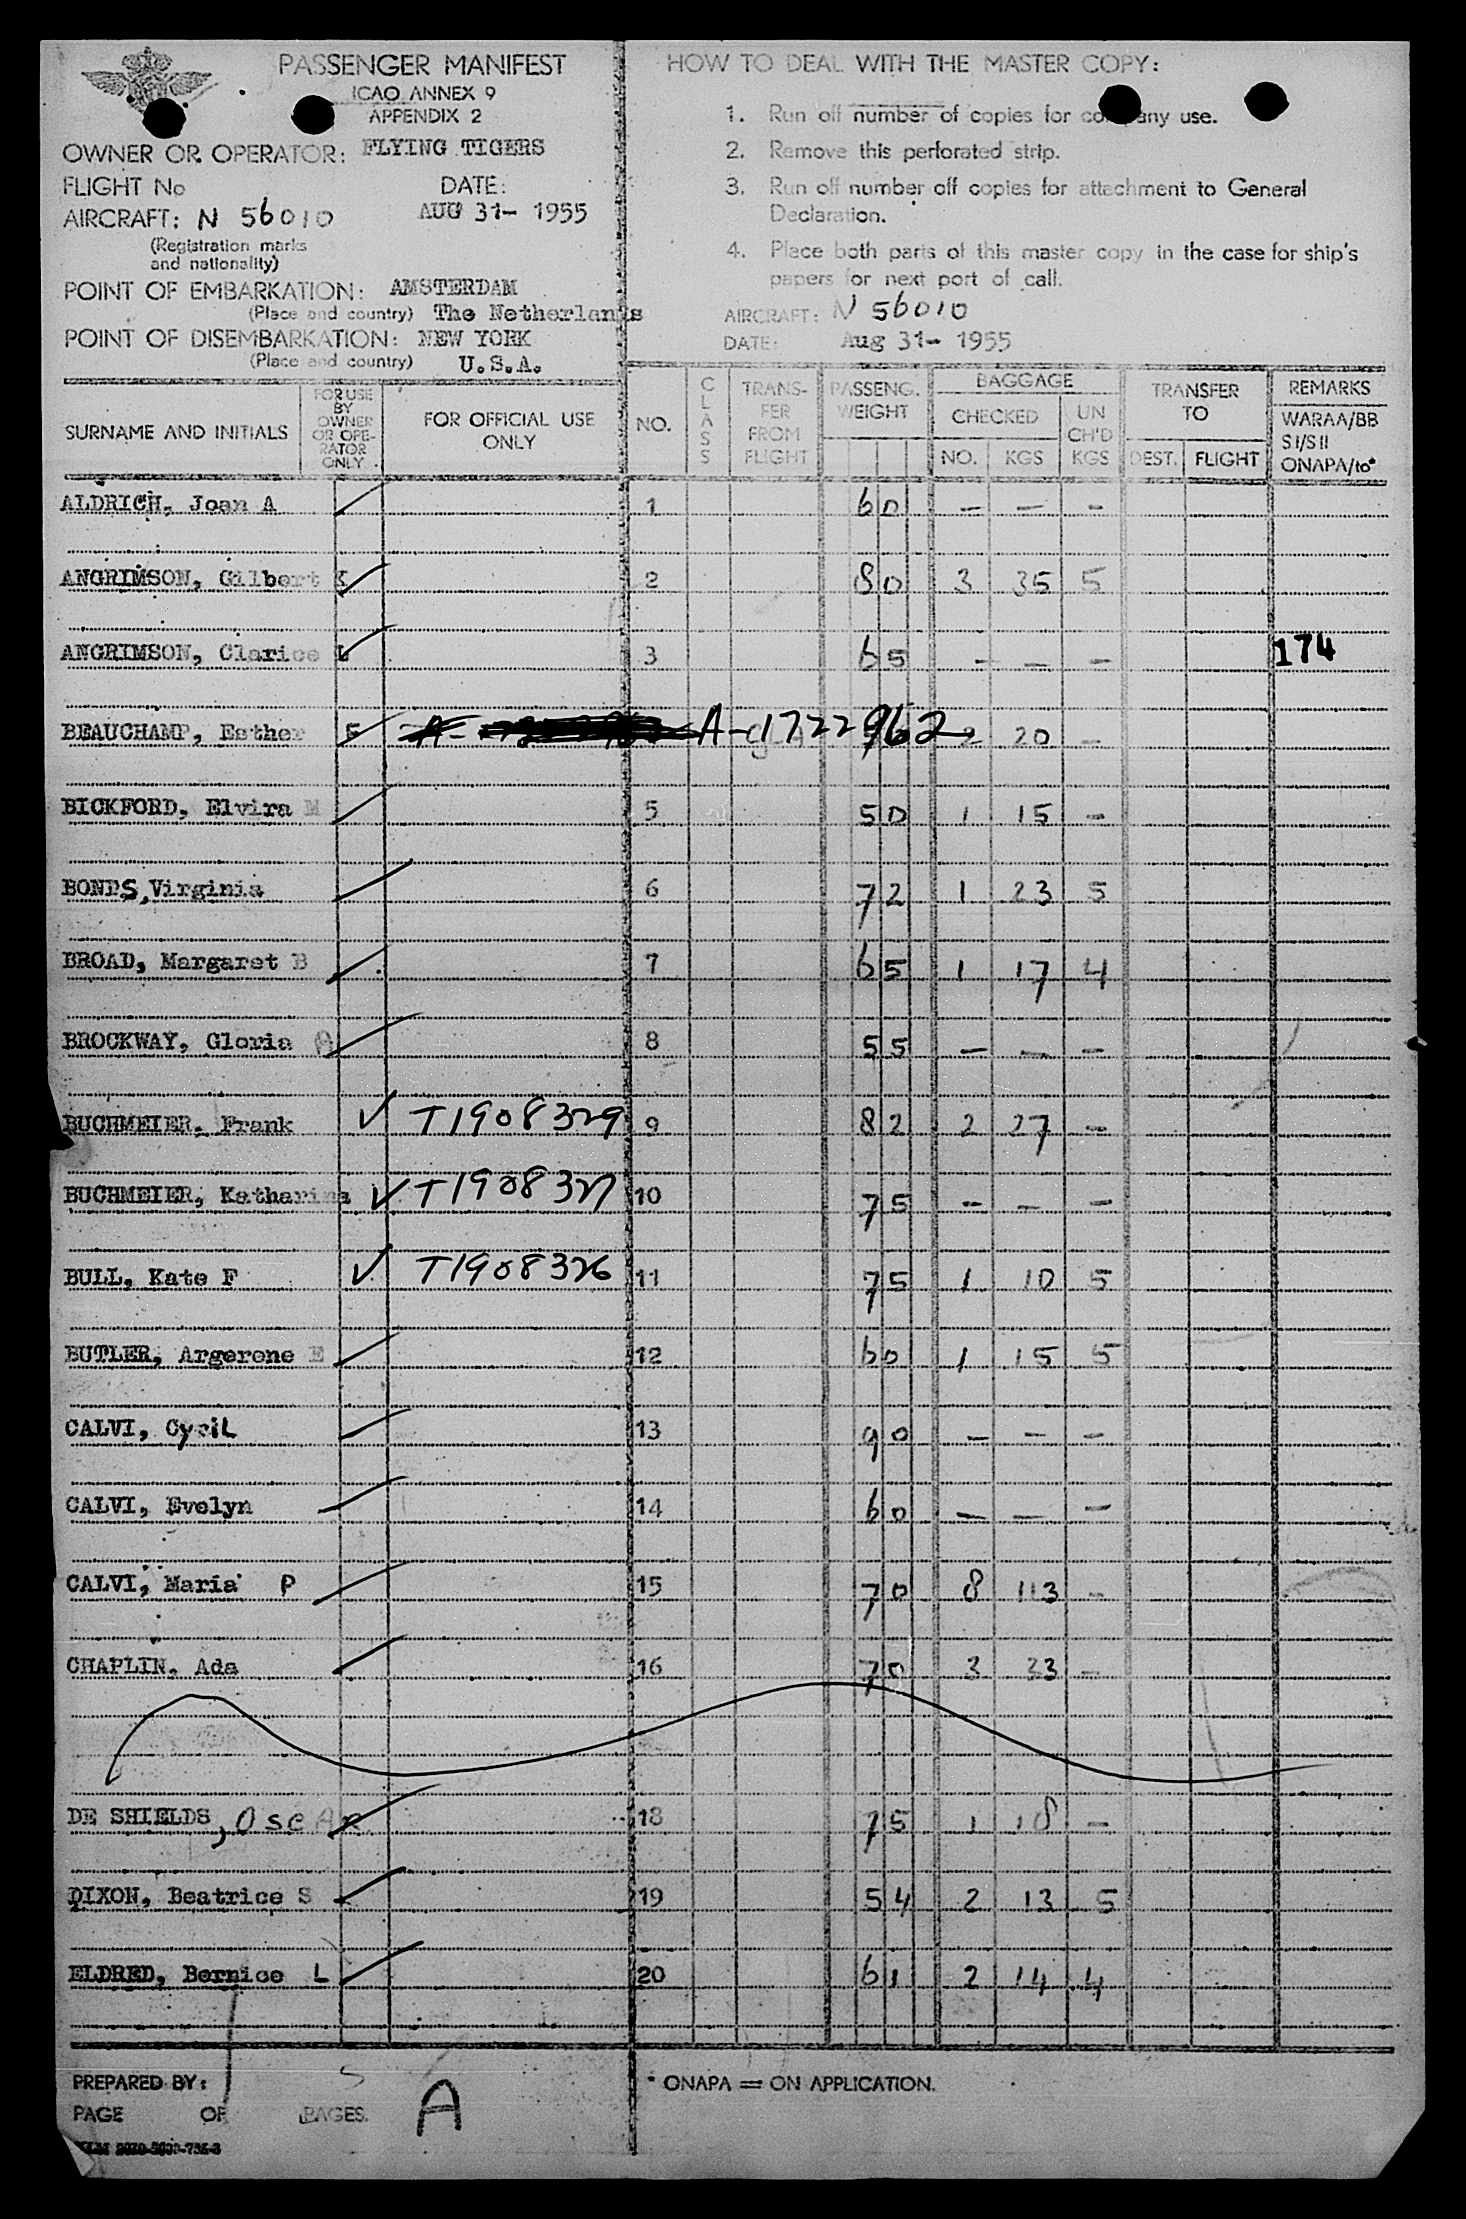 PASSENGER MANIFEST
ICAO ANNEX 9
APPENDIX 2
OWNER OR OPERATOR: FLYING TIGERS
FLIGHT No
DATE:
AIRCRAFT: N 56010
AUG 31- 1955
(Registration marks
and nationality)
POINT OF EMBARKATION: AMSTERDAM
(Place and country) The Netherlands
POINT OF DISEMBARKATION: NEW YORK
(Place and country) U.S.A.
HOW TO DEAL WITH THE MASTER COPY:
1. Run off number of copies for company use.
2. Remove this perforated strip.
3. Run off number off copies for attachment to General
Declaration.
4. Place both parts of this master copy in the case for ship's
papers for next port of call.
AIRCRAFT: N 56010
DATE: Aug 31- 1955
SURNAME AND INITIALS
FOR USE
BY
OWNER
OR OPE-
RATOR
ONLY.
FOR OFFICIAL USE
ONLY
NO.
CLASS
TRANS-
FER
FROM
FLIGHT
PASSENG.
WEIGHT
BAGGAGE
CHECKED
NO. KGS
UN
CH'D
KGS
TRANSFER
TO
DEST. FLIGHT
REMARKS
WARAA/BB
SI/SII
ONAPA/to*
ALDRICH, Joan A 1 60 - - -
ANGRIMSON, Gilbert K 2 80 3 35 5
ANGRIMSON, Clarice L 3 65 - - - 174
BEAUCHAMP, Esther F A- A-1722962 2 20 -
BICKFORD, Elvira M 5 50 1 15 -
BONDS, Virginia 6 72 1 23 5
BROAD, Margaret B 7 65 1 17 4
BROCKWAY, Gloria A 8 55 - - -
BUCHMEIER, Frank ✓ T1908329 9 82 2 27 -
BUCHMEIER, Katharina ✓ T1908327 10 75 - - -
BULL, Kate F ✓ T1908326 11 75 1 10 5
BUTLER, Argerene E 12 60 1 15 5
CALVI, CyriL 13 90 - - -
CALVI, Evelyn 14 60 - - -
CALVI, Maria P 15 70 8 113 -
CHAPLIN, Ada 16 70 3 33 -
DE SHIELDS, OscAR 18 75 1 18 -
DIXON, Beatrice S 19 54 2 13 5
ELDRED, Bernice L 20 61 2 14 4
PREPARED BY:
PAGE OF PAGES.
A
* ONAPA = ON APPLICATION.